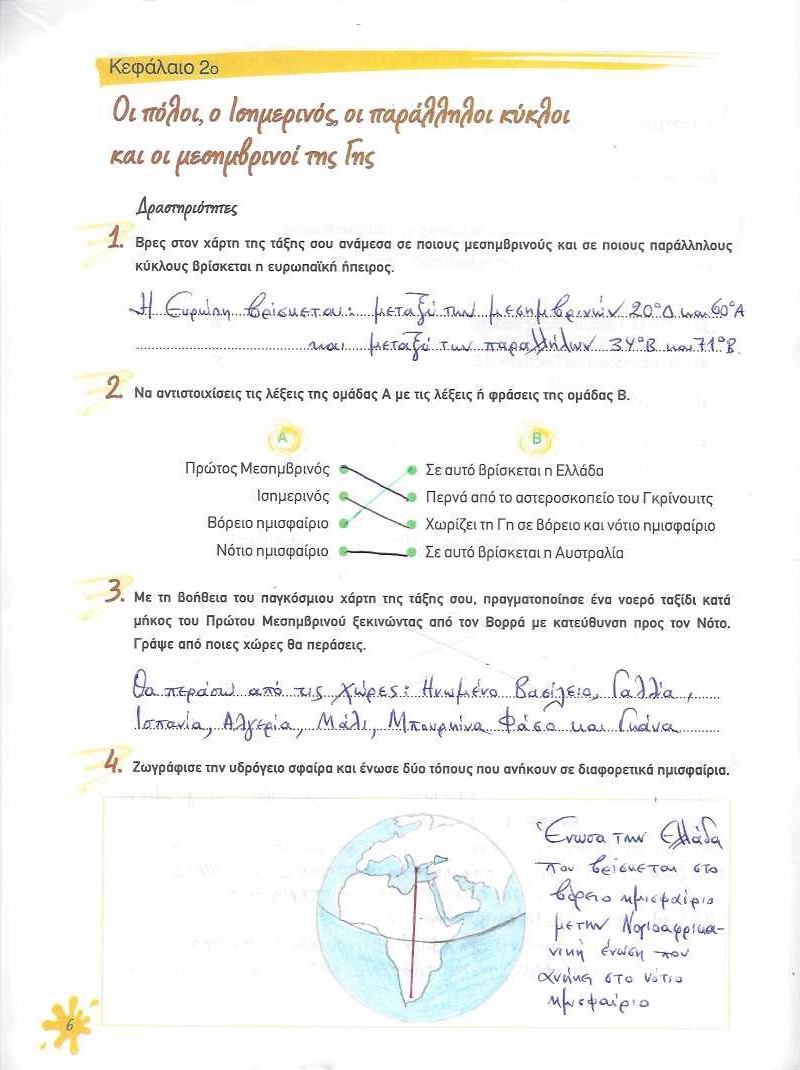 Κεφάλαιο 2ο
Οι πόλοι, ο Ισημερινός, οι παράλληλοι κύκλοι
και οι μεσημβρινοί της Γης
Δραστηριότητες
1. Βρες στον χάρτη της τάξης σου ανάμεσα σε ποιους μεσημβρινούς και σε ποιους παράλληλους
κύκλους βρίσκεται η ευρωπαϊκή ήπειρος.
Η Ευρώπη βρίσκεται: μεταξύ των μεσημβρινών 20°Δ και 60°Α
και μεταξύ των παραλλήλων 34°Β και 71°Β.
2. Να αντιστοιχίσεις τις λέξεις της ομάδας Α με τις λέξεις ή φράσεις της ομάδας Β.
Α Β
Πρώτος Μεσημβρινός Σε αυτό βρίσκεται η Ελλάδα
Ισημερινός Περνά από το αστεροσκοπείο του Γκρίνουιτς
Βόρειο ημισφαίριο Χωρίζει τη Γη σε βόρειο και νότιο ημισφαίριο
Νότιο ημισφαίριο Σε αυτό βρίσκεται η Αυστραλία
3. Με τη βοήθεια του παγκόσμιου χάρτη της τάξης σου, πραγματοποίησε ένα νοερό ταξίδι κατά
μήκος του Πρώτου Μεσημβρινού ξεκινώντας από τον Βορρά με κατεύθυνση προς τον Νότο.
Γράψε από ποιες χώρες θα περάσεις.
Θα περάσω από τις χώρες: Ηνωμένο Βασίλειο, Γαλλία,
Ισπανία, Αλγερία, Μάλι, Μπουρκίνα Φάσο και Γκάνα
4. Ζωγράφισε την υδρόγειο σφαίρα και ένωσε δύο τόπους που ανήκουν σε διαφορετικά ημισφαίρια.
Ένωσα την Ελλάδα
που βρίσκεται στο
βόρειο ημισφαίριο
με την Νοτιοαφρικα-
νική ένωση που
ανήκει στο νότιο
ημισφαίριο
6